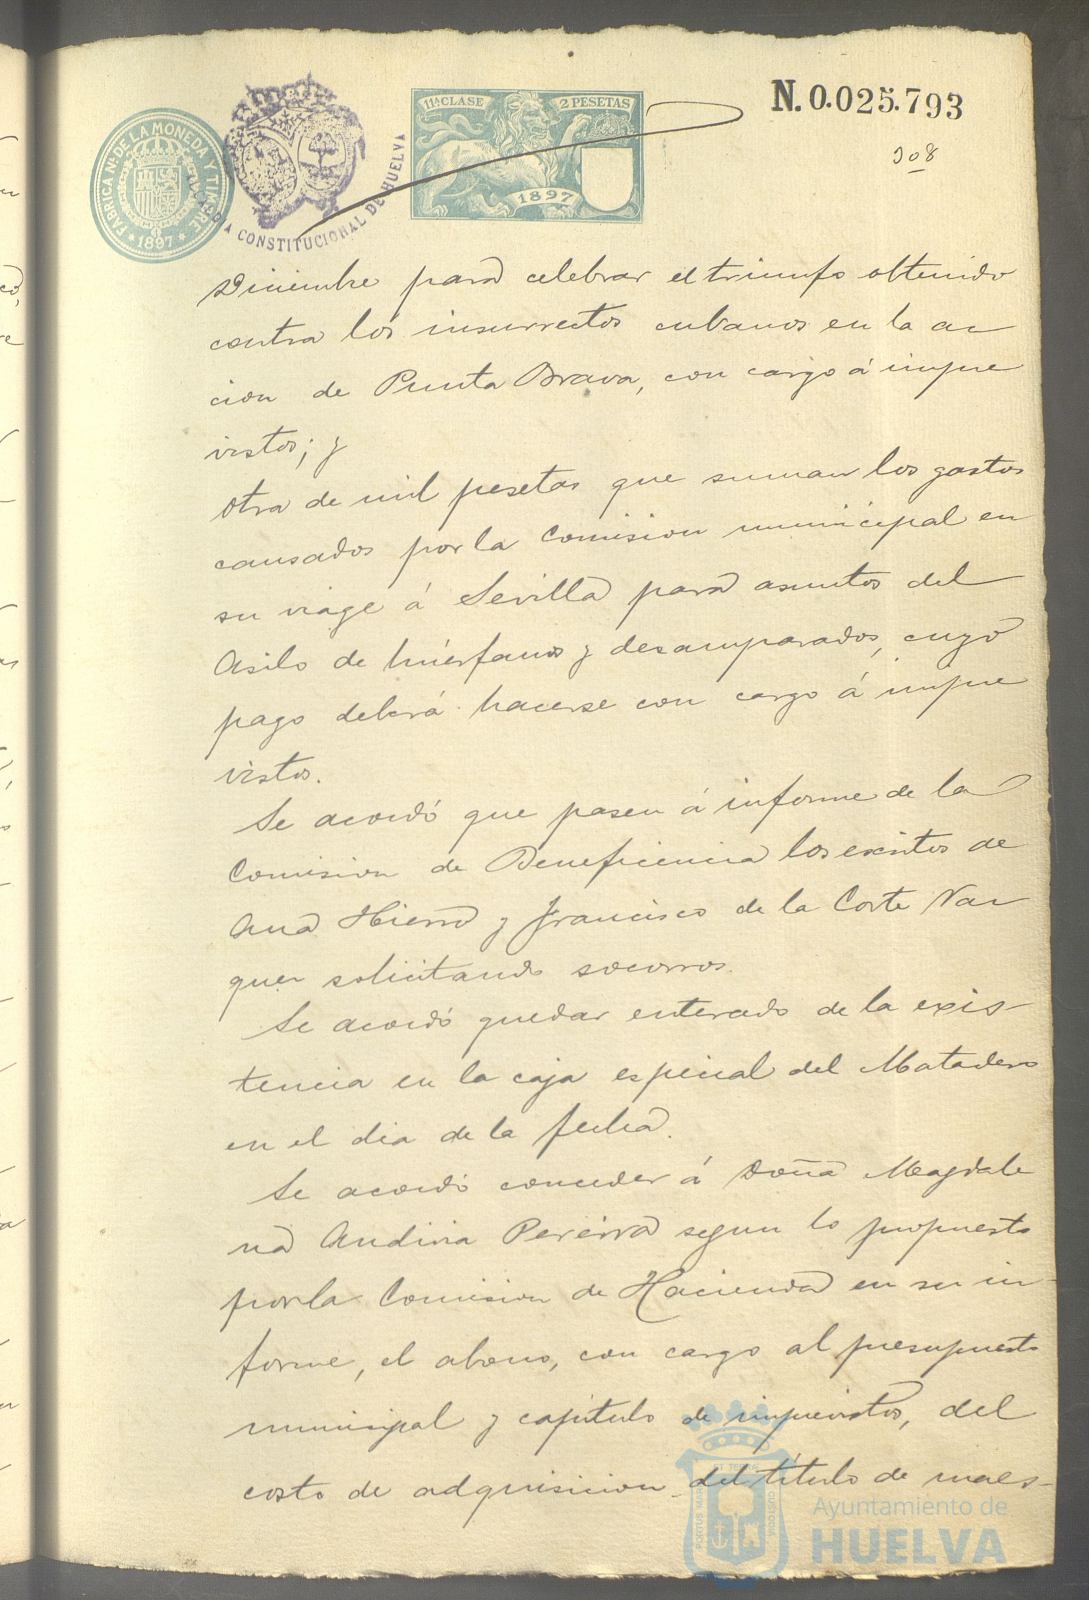 N. 0.025.793
308
11ª CLASE 2 PESETAS
1897
FÁBRICA Nal. DE LA MONEDA Y TIMBRE
* 1897 *
ALCALDIA CONSTITUCIONAL DE HUELVA
Diciembre para celebrar el triunfo obtenido
contra los insurrectos cubanos en la ac
cion de Punta Brava, con cargo á impre
vistos; y
otra de mil pesetas que suman los gastos
causados por la Comision municipal en
su viage á Sevilla para asuntos del
Asilo de huérfanos y desamparados, cuyo
pago deberá hacerse con cargo á impre
vistos.
Se acordó que pasen á informe de la
Comision de Beneficencia los escritos de
Ana Hierro y Francisco de la Corte Vaz
quez solicitando socorros.
Se acordó quedar enterado de la exis-
tencia en la caja especial del Matadero
en el dia de la fecha.
Se acordó conceder á Doña Magdale
na Pereira segun lo propuesto
por la Comision de Hacienda en su in-
forme, el abono, con cargo al presupuesto
municipal y capítulo de imprevistos, del
costo de adquisicion del título de maes-
PORTUS MARIS ET TERRAE CUSTODIA
Ayuntamiento de
HUELVA